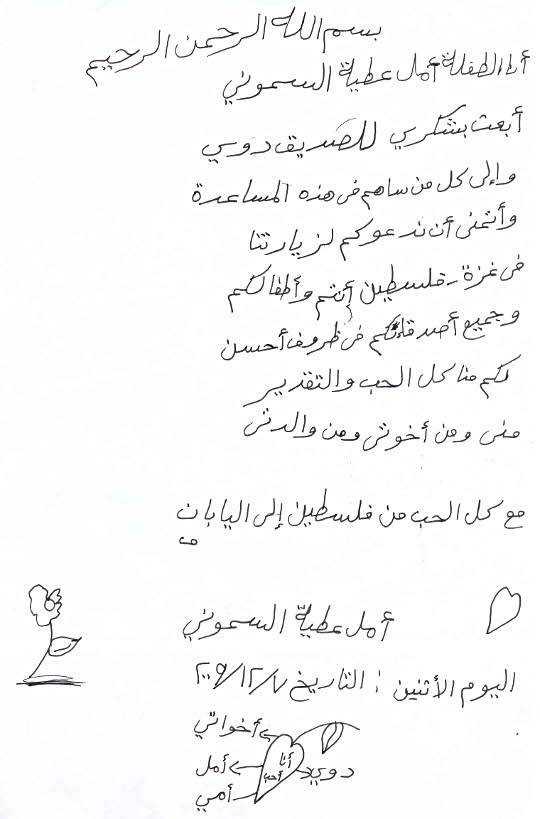 بسم الله الرحمن الرحيم
أنا الطفلة أمل عطية السموني
أبعث بشكري للصديق دوسي
وإلى كل من ساهم في هذه المساعدة
وأتمنى أن ندعوكم لزيارتنا
في غزة - فلسطين أنتم وأطفالكم
وجميع أصدقائكم في ظروف أحسن
لكم منا كل الحب والتقدير
مني ومن أخوتي ومن والدتي
مع كل الحب من فلسطين إلى اليابان
أمل عطية السموني
اليوم الأثنين : التاريخ ٢٠٠٩/١٢/٧
أخواتي
أنا
دوي
أمل
أمي